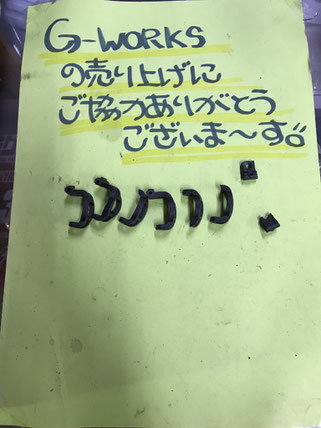 G-WORKS
の売り上げに
ご協力ありがとう
ございま〜す!!